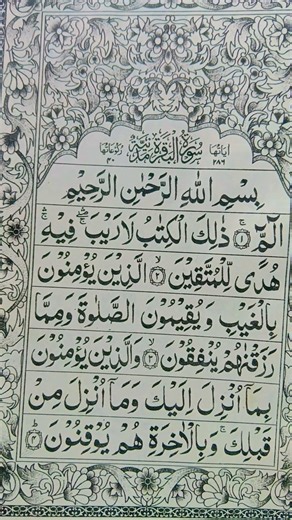 اٰیَاتُهَا ٢٨٦ سُوْرَةُ الْبَقَرَةِ مَدَنِیَّةٌ رُكُوْعَاتُهَا ٤٠
بِسْمِ اللّٰهِ الرَّحْمٰنِ الرَّحِیْمِ
الٓمّٓ ۚ﴿۱﴾ ذٰلِكَ الْكِتٰبُ لَا رَیْبَ ۛۖۚ فِیْهِ ۛۚ
هُدًی لِّلْمُتَّقِیْنَ ۙ﴿۲﴾ الَّذِیْنَ یُؤْمِنُوْنَ
بِالْغَیْبِ وَ یُقِیْمُوْنَ الصَّلٰوةَ وَمِمَّا
رَزَقْنٰهُمْ یُنْفِقُوْنَ ۙ﴿۳﴾ وَالَّذِیْنَ یُؤْمِنُوْنَ
بِمَاۤ اُنْزِلَ اِلَیْكَ وَمَاۤ اُنْزِلَ مِنْ
قَبْلِكَ ۚ وَبِالْاٰخِرَةِ هُمْ یُوْقِنُوْنَ ؕ﴿۴﴾